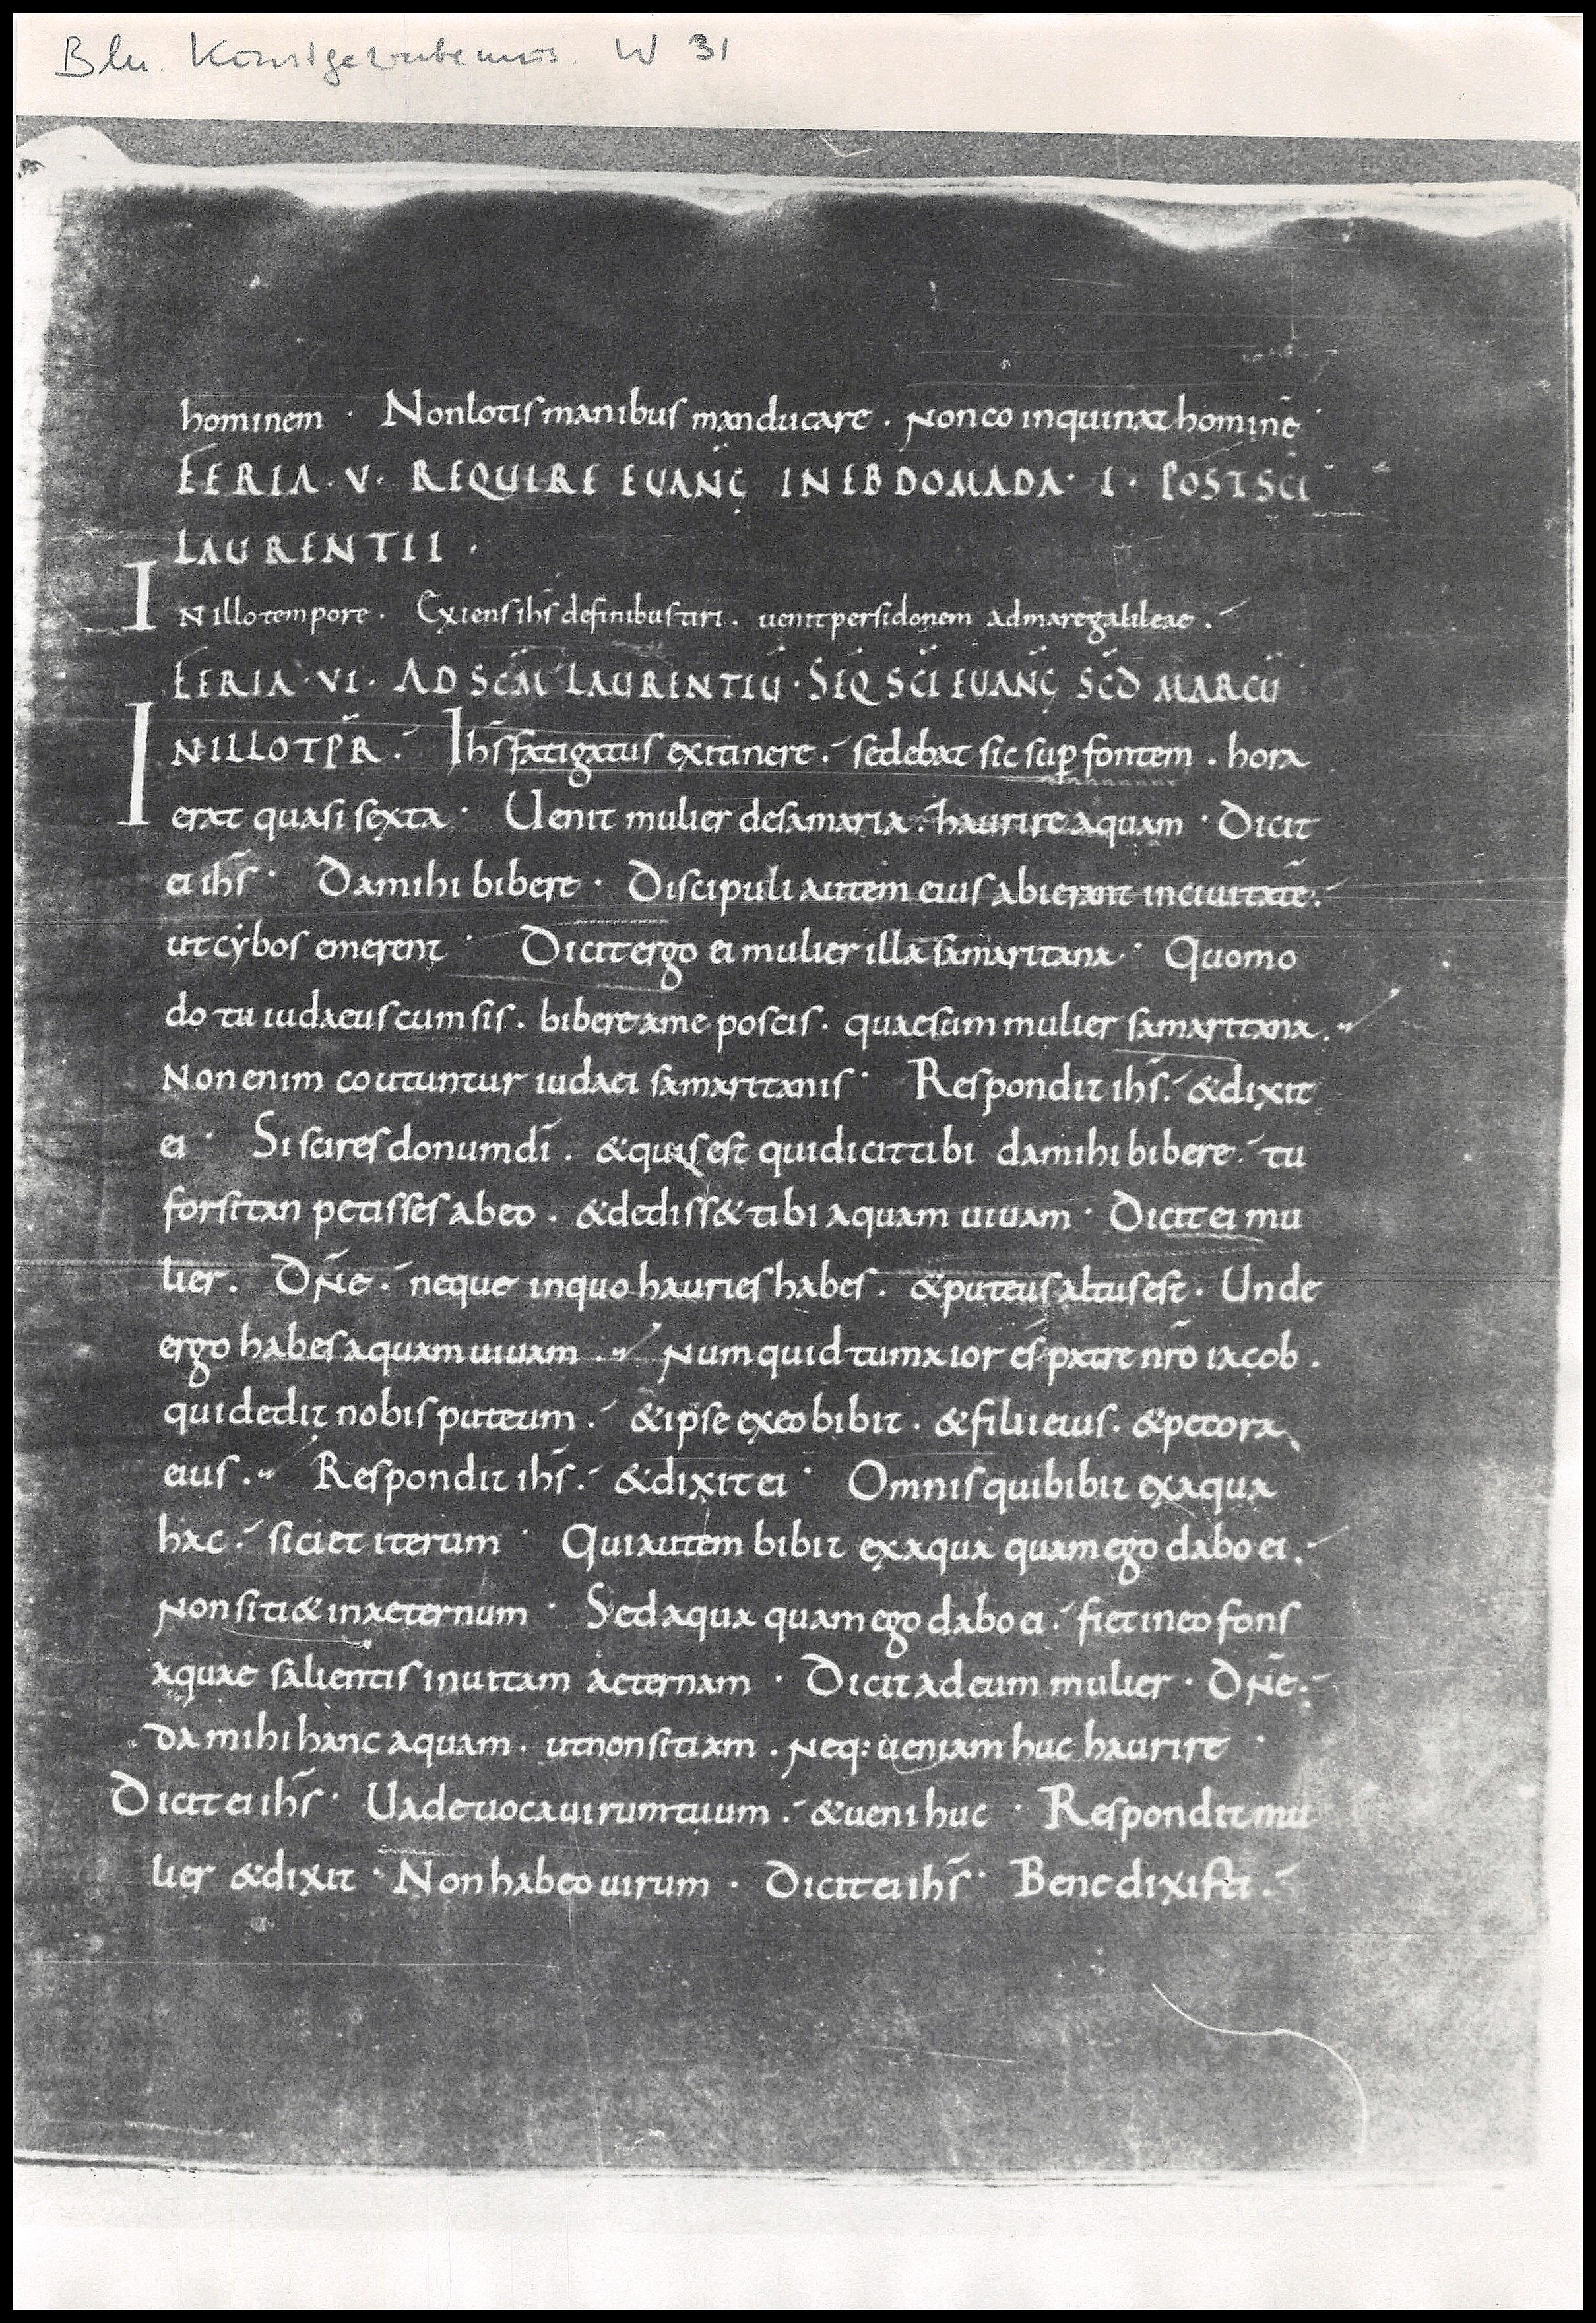 Bln. Kunstgewerbemus. W 31
hominem · Non lotis manibus manducare . non co inquinat hominē ·
FERIA · V · REQUIRE EVANḠ IN EBDOMADA · I · POST SCĪ
LAURENTII ·
IN illo tempore . Exiens ihs̄ de finibus tiri . uenit per sidonem ad mare galileae .
FERIA · VI · AD SCM̄ LAURENTIŪ · SEQ SCĪ EVANḠ SCD̄ MARCŪ
IN ILLO TPR̄ . Ihs̄ fatigatus ex itinere . sedebat sic sup̱ fontem . hora
erat quasi sexta · Uenit mulier de samaria . haurire aquam · Dicit
ei ihs̄ · Da mihi bibere · Discipuli autem eius abierant in ciuitatē .
ut cybos emerent · Dicit ergo ei mulier illa samaritana · Quomo
do tu iudaeus cum sis . bibere a me poscis . quae sum mulier samaritana .
Non enim coutuntur iudaei samaritanis · Respondit ihs̄ . & dixit
ei · Si scires donum dī . & quis est qui dicit tibi da mihi bibere . tu
forsitan petisses ab eo . & dediss& tibi aquam uiuam · Dicit ei mu
lier . Dn̄e . neque in quo hauries habes . & puteus altus est . Unde
ergo habes aquam uiuam . Numquid tu maior es patre nr̄o iacob .
qui dedit nobis puteum . & ipse ex eo bibit . & filii eius . & pecora
eius . Respondit ihs̄ . & dixit ei · Omnis qui bibit ex aqua
hac . sitiet iterum · Qui autem bibit ex aqua quam ego dabo ei .
non siti& in aeternum · Sed aqua quam ego dabo ei . fiet in eo fons
aquae salientis in uitam aeternam · Dicit ad eum mulier · Dn̄e .
da mihi hanc aquam . ut non sitiam . neq: ueniam huc haurire ·
Dicit ei ihs̄ · Uade uoca uirum tuum . & ueni huc · Respondit mu
lier & dixit · Non habeo uirum · Dicit ei ihs̄ · Bene dixisti .